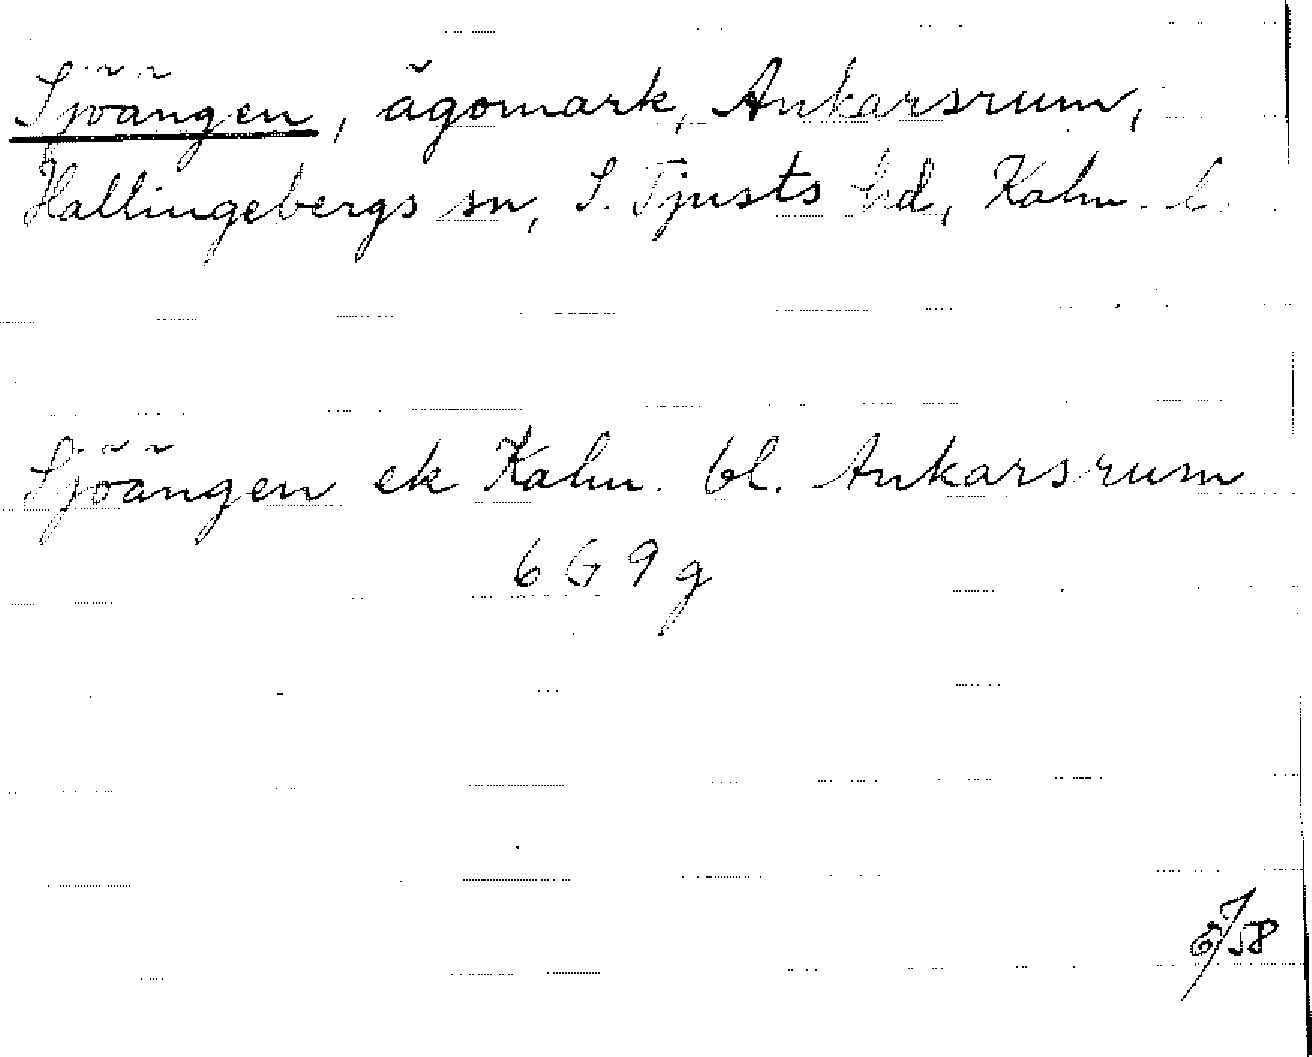 Sjöängen, ägomark, Ankarsrum,
Hallingebergs sn, S. Tjusts hd, Kalm. l.
Sjöängen ek Kalm. bl. Ankarsrum
6 G 9 g